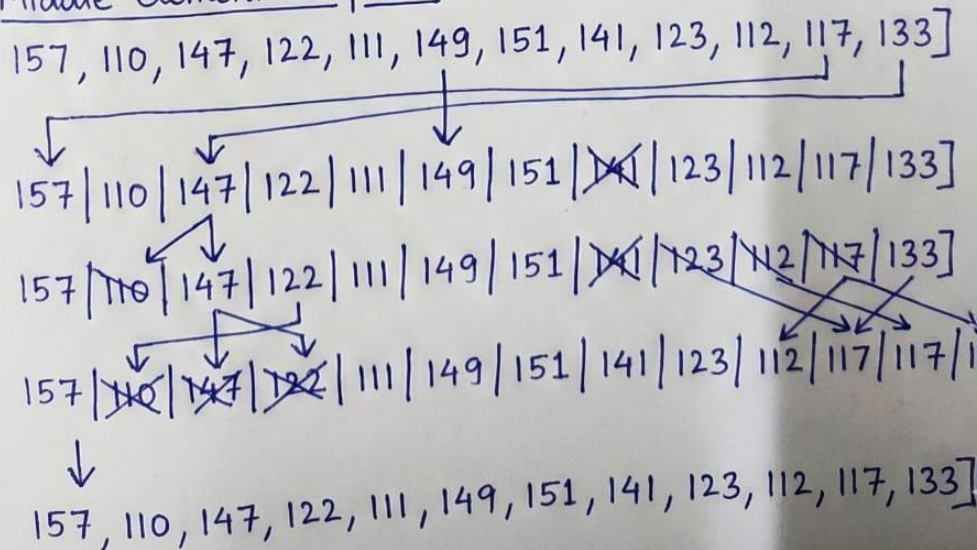 Middle Element
157, 110, 147, 122, 111, 149, 151, 141, 123, 112, 117, 133]
157 | 110 | 147 | 122 | 111 | 149 | 151 | 141 | 123 | 112 | 117 | 133]
157 | 110 | 147 | 122 | 111 | 149 | 151 | 141 | 123 | 112 | 117 | 133]
157 | 110 | 147 | 122 | 111 | 149 | 151 | 141 | 123 | 112 | 117 | 117 |
157, 110, 147, 122, 111, 149, 151, 141, 123, 112, 117, 133]